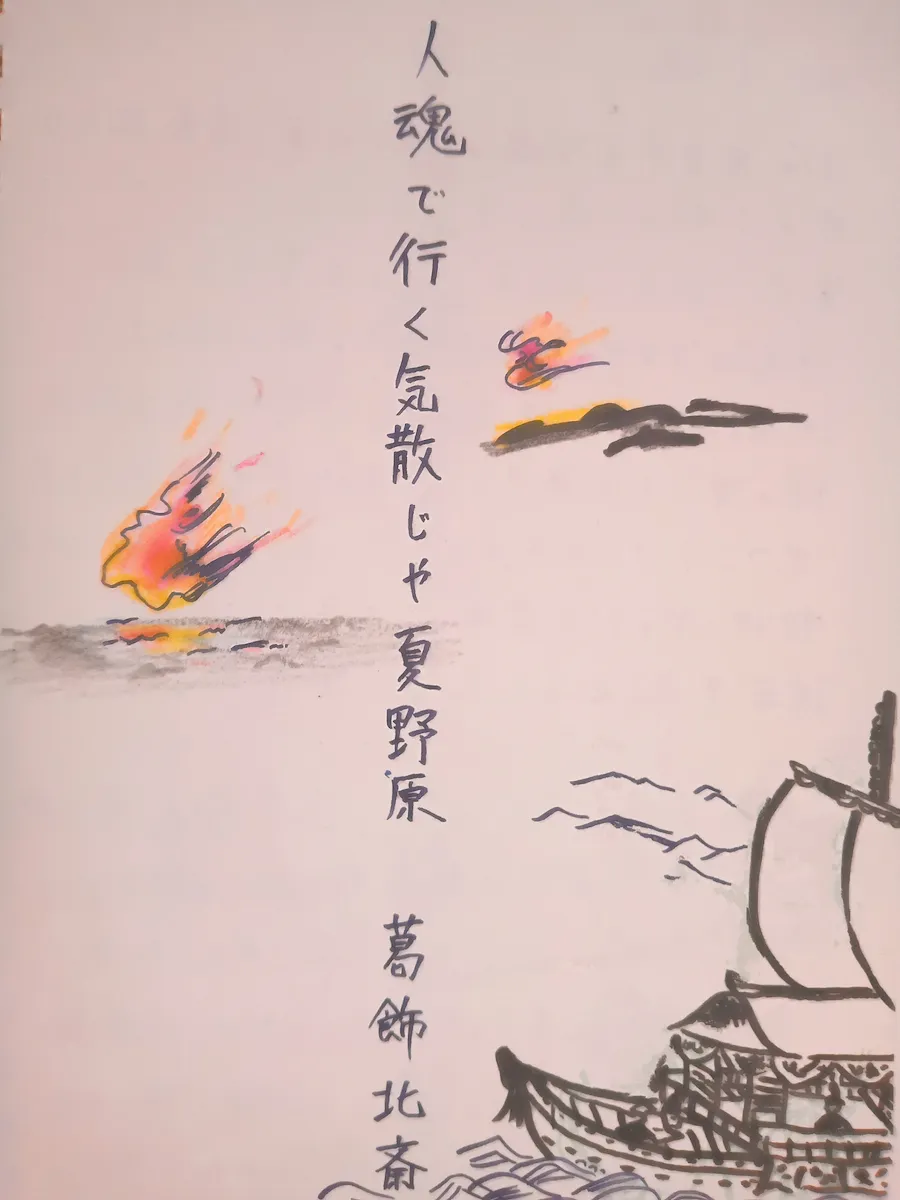 人魂で行く気散じや夏野原　葛飾北斎